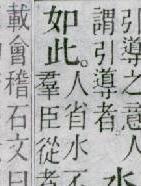 引導之意人
謂引導者
水
如此。
人省水不
羣臣從者
載會稽石文曰